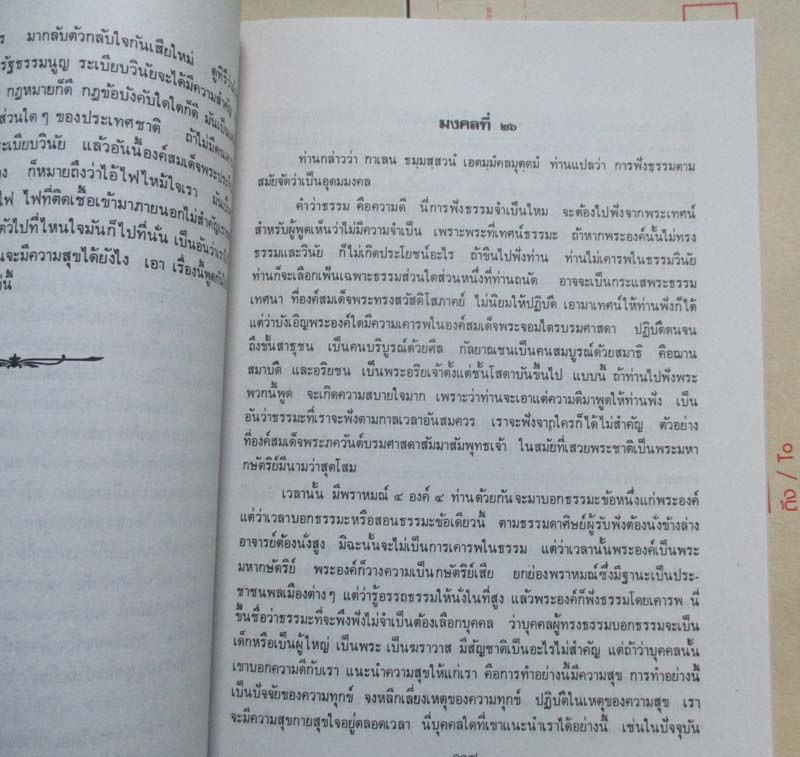 มากลับตัวกลับใจกันเสียใหม่
รัฐธรรมนูญ ระเบียบวินัยจะได้มีความสำคัญ
กฎหมายก็ดี กฎข้อบังคับใดใดก็ดี มันเป็น
ส่วนใดๆ ของประเทศชาติ ถ้าไม่มี
ระเบียบวินัย แล้วอันนี้องค์สมเด็จพระ
ก็หมายถึงว่าไอ้ไฟไหม้ใจเรา
ไฟ ไฟที่ติดเชื้อเข้ามาภายนอกไม่สำคัญ
ตัวไปที่ไหนใจมันก็ไปที่นั่น เป็นอันว่า
จะมีความสุขได้ยังไง เอา เรื่องนี้พูด
มงคลที่ ๒๖
ท่านกล่าวว่า กาเลน ธมฺมสฺสวนํ เอตมฺมํคลมุตฺตมํ ท่านแปลว่า การฟังธรรมตาม
สมัยจัดว่าเป็นอุดมมงคล
คำว่าธรรม คือความดี นี่การฟังธรรมจำเป็นไหม จะต้องไปฟังจากพระเทศน์
สำหรับผู้พูดเห็นว่าไม่มีความจำเป็น เพราะพระที่เทศน์ธรรมะ ถ้าหากพระองค์นั้นไม่ทรง
ธรรมและวินัย ก็ไม่เกิดประโยชน์อะไร ถ้าขืนไปฟังท่าน ท่านไม่เคารพในธรรมวินัย
ท่านก็จะเลือกเฟ้นเฉพาะธรรมส่วนใดส่วนหนึ่งที่ท่านถนัด อาจจะเป็นกระแสพระธรรม
เทศนา ที่องค์สมเด็จพระทรงสวัสดิโสภาคย์ ไม่นิยมให้ปฏิบัติ เอามาเทศน์ให้ท่านฟังก็ได้
แต่ว่าบังเอิญพระองค์ใดมีความเคารพในองค์สมเด็จพระจอมไตรบรมศาสดา ปฏิบัติตนจน
ถึงขั้นสาธุชน เป็นคนบริบูรณ์ด้วยศีล กัลยาณชนเป็นคนสมบูรณ์ด้วยสมาธิ คือฌาน
สมาบัติ และอริยชน เป็นพระอริยเจ้าตั้งแต่ชั้นโสดาบันขึ้นไป แบบนี้ ถ้าท่านไปฟังพระ
พวกนี้พูด จะเกิดความสบายใจมาก เพราะว่าท่านจะเอาแต่ความดีมาพูดให้ท่านฟัง เป็น
อันว่าธรรมะที่เราจะฟังตามกาลเวลาอันสมควร เราจะฟังจากใครก็ได้ไม่สำคัญ ตัวอย่าง
ที่องค์สมเด็จพระภควันต์บรมศาสดาสัมมาสัมพุทธเจ้า ในสมัยที่เสวยพระชาติเป็นพระมหา
กษัตริย์มีนามว่าสุตโสม
เวลานั้น มีพราหมณ์ ๔ องค์ ๔ ท่านด้วยกันจะมาบอกธรรมะข้อหนึ่งแก่พระองค์
แต่ว่าเวลาบอกธรรมะหรือสอนธรรมะข้อเดียวนี้ ตามธรรมดาศิษย์ผู้รับฟังต้องนั่งข้างล่าง
อาจารย์ต้องนั่งสูง มิฉะนั้นจะไม่เป็นการเคารพในธรรม แต่ว่าเวลานั้นพระองค์เป็นพระ
มหากษัตริย์ พระองค์ก็วางความเป็นกษัตริย์เสีย ยกย่องพราหมณ์ซึ่งมีฐานะเป็นประ-
ชาชนพลเมืองต่างๆ แต่ว่ารู้อรรถธรรมให้นั่งในที่สูง แล้วพระองค์ก็ฟังธรรมโดยเคารพ นี่
ขึ้นชื่อว่าธรรมะที่จะพึงฟังไม่จำเป็นต้องเลือกบุคคล ว่าบุคคลผู้ทรงธรรมบอกธรรมจะเป็น
เด็กหรือเป็นผู้ใหญ่ เป็นพระ เป็นฆราวาส มีสัญชาติเป็นอะไรไม่สำคัญ แต่ถ้าว่าบุคคลนั้น
เขาบอกความดีกับเรา แนะนำความสุขให้แก่เรา คือการทำอย่างนี้มีความสุข การทำอย่างนี้
เป็นปัจจัยของความทุกข์ จงหลีกเลี่ยงเหตุของความทุกข์ ปฏิบัติในเหตุของความสุข เรา
จะมีความสุขกายสุขใจอยู่ตลอดเวลา นี่บุคคลใดที่เขาแนะนำเราได้อย่างนี้ เช่นในปัจจุบัน
ถึง / To